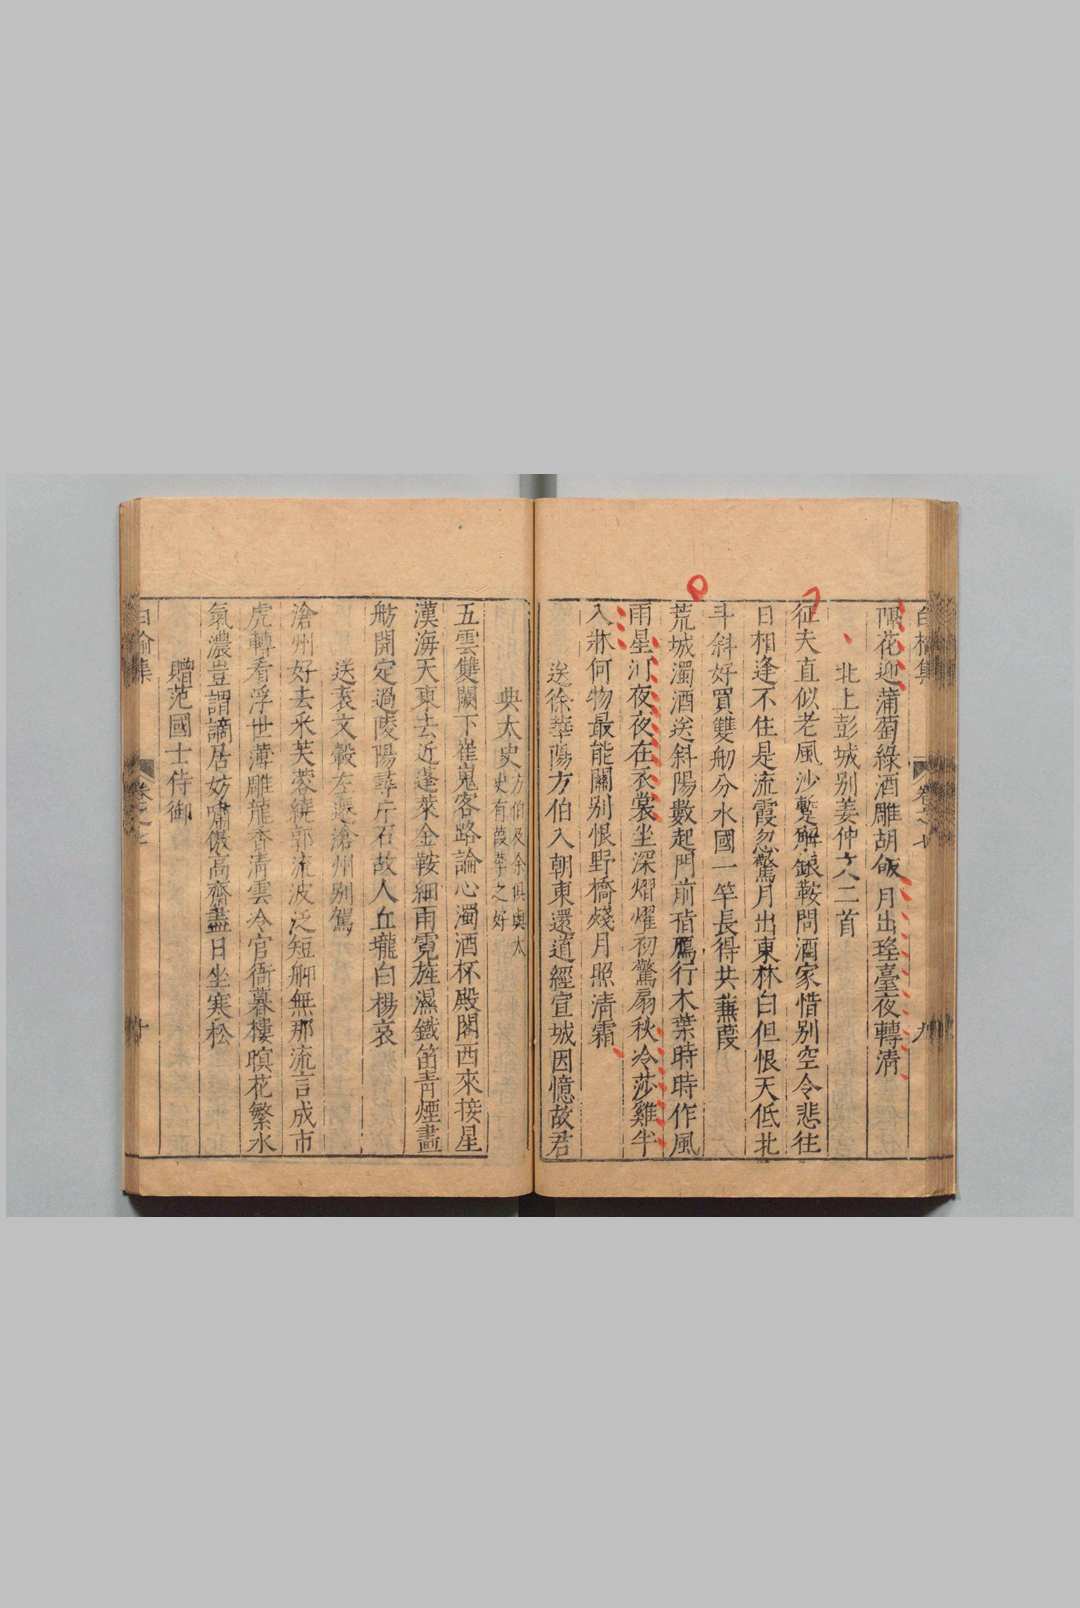 白榆集
卷之七
九
隔花迎蒲萄綠酒雕胡飯月出瑤臺夜轉清
北上彭城別姜仲文二首
征夫直似老風沙暫解銀鞍問酒家惜別空令悲往
日相逢不住是流霞忽驚月出東林白但恨天低北
斗斜好買雙舠分水國一竿長得共蒹葭
荒城濁酒送斜陽數起門前嘶鴈行木葉時時作風
雨星河夜夜在衣裳坐深熠燿初驚扇秋冷莎雞半
入牀何物最能關別恨野橋殘月照清霜
送徐華陽方伯入朝東還道經宣城因憶故君
典太史方伯及余俱與太
史有葭莩之好
五雲雙闕下崔嵬客路論心濁酒杯殿閣西來接星
漢海天東去近蓬萊金鞍細雨霓旌濕鐵笛青煙畫
舫開定過陵陽尋片石故人丘壠白楊哀
送袁文轂左遷滄州別駕
滄州好去采芙蓉繞郭流波泛短舠無那流言成市
虎轉看浮世薄雕龍香清雲冷官衙暮樓暝花繁水
氣濃豈謂謫居妨嘯傲高齋盡日坐寒松
贈范國士侍御
白榆集
卷之七
十